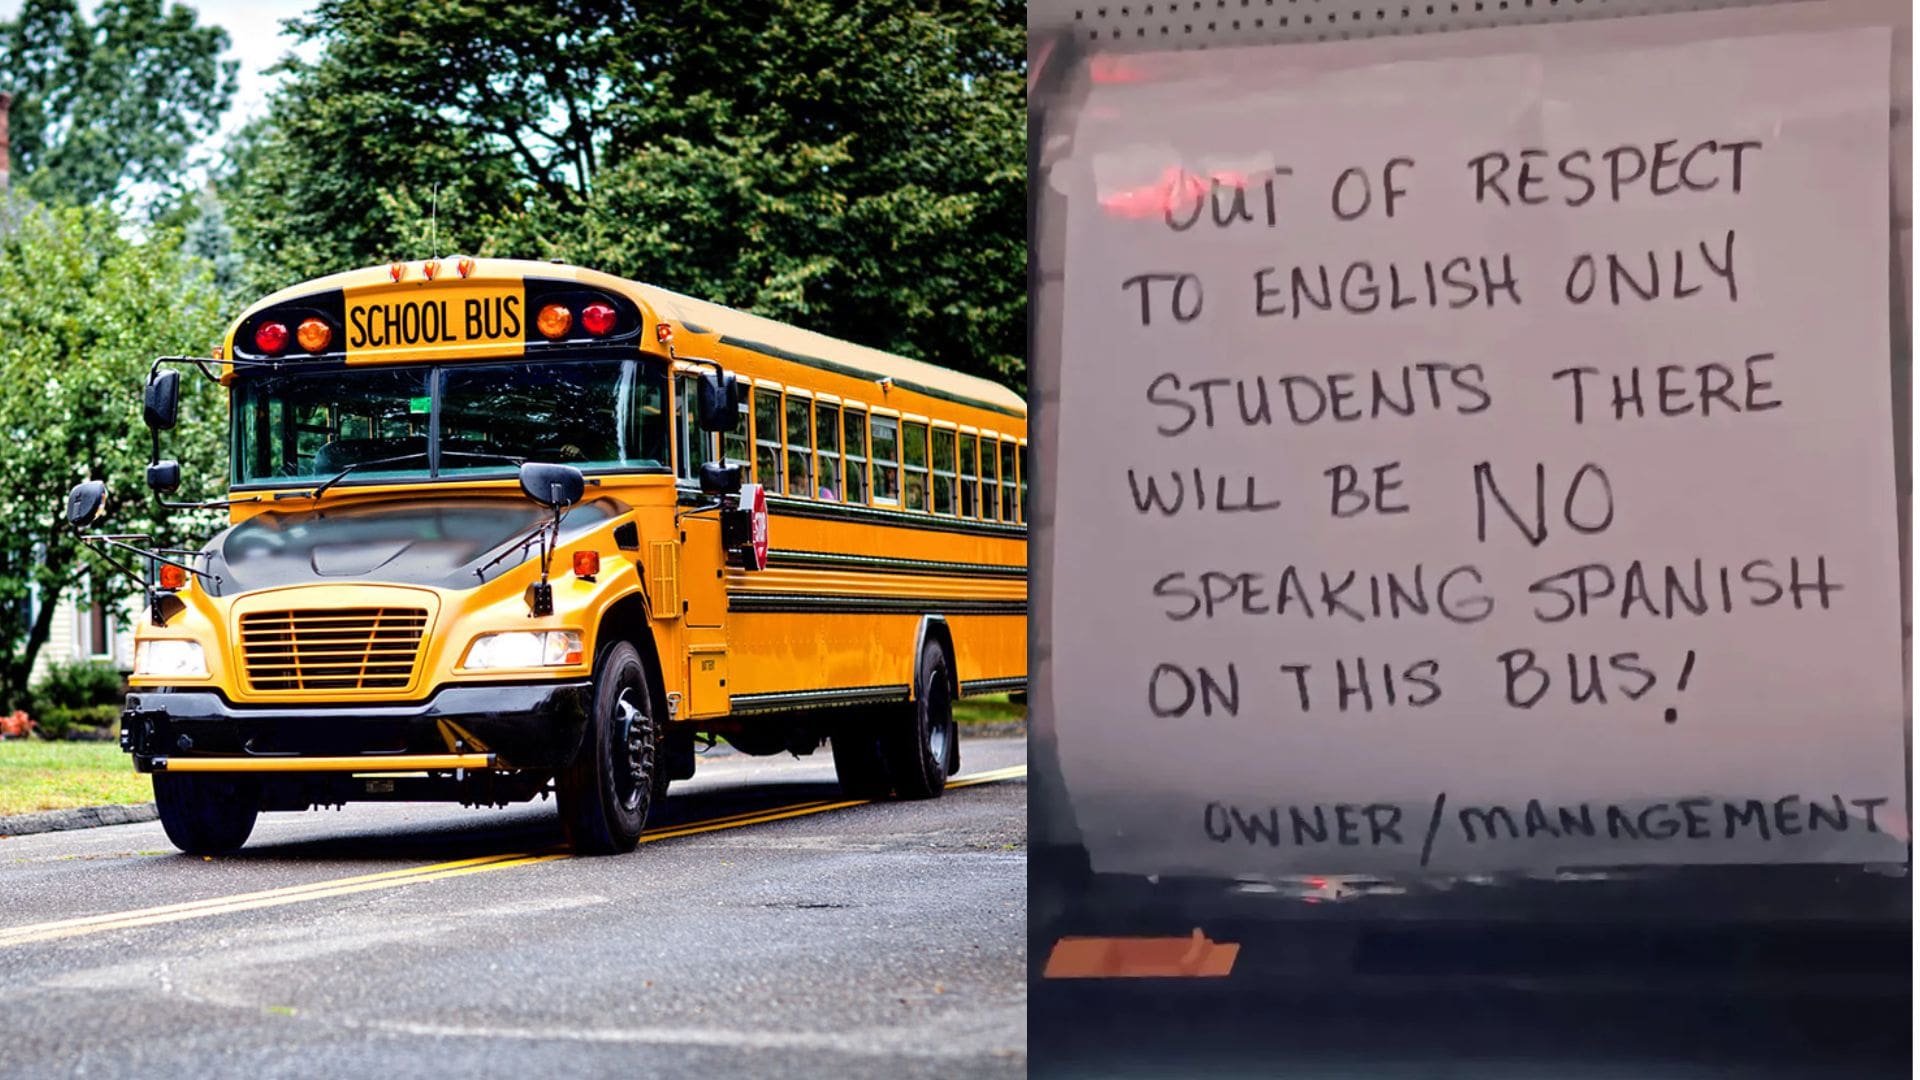 SCHOOL BUS
STOP
OUT OF RESPECT
TO ENGLISH ONLY
STUDENTS THERE
WILL BE NO
SPEAKING SPANISH
ON THIS BUS!
OWNER/MANAGEMENT